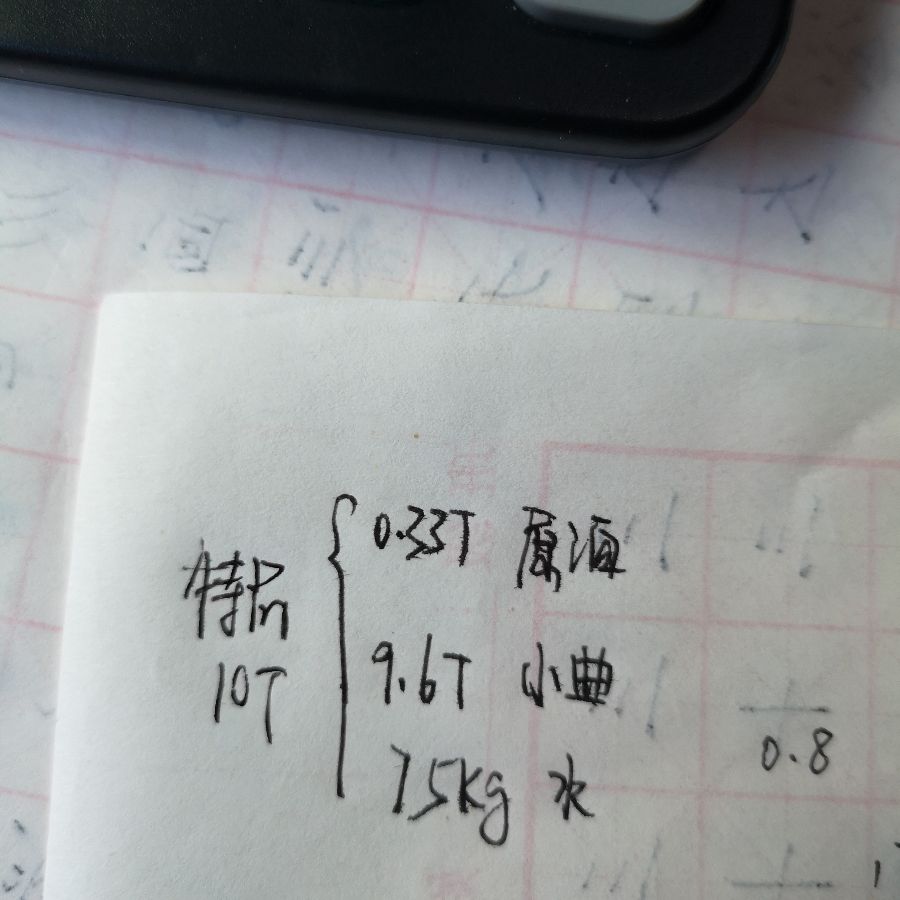 特Pn
10T
0.33T 原酒
9.6T 小曲
75kg 水
0.8